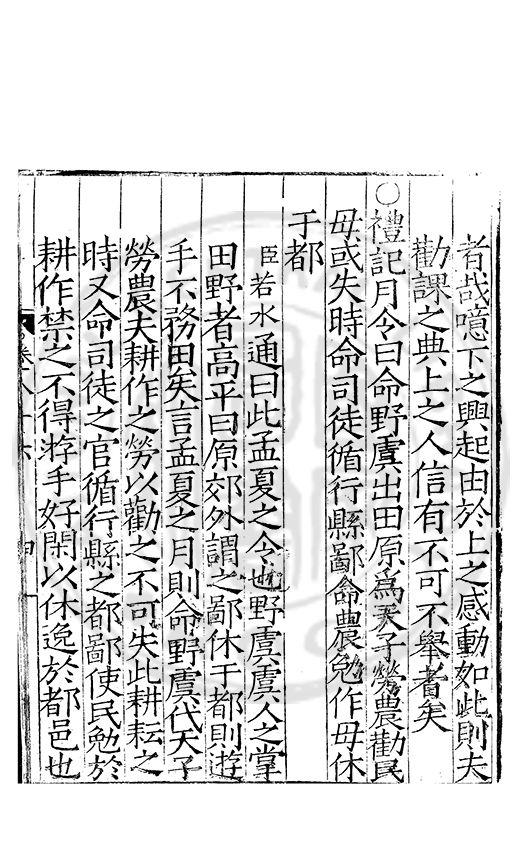 者哉噫下之興起由於上之感動如此則夫
勸課之典上之人信有不可不舉者矣
○禮記月令曰命野虞出田原為天子勞農勸民
毋或失時命司徒循行縣鄙命農勉作毋休
于都
臣若水通曰此孟夏之令也野虞虞人之掌
田野者高平曰原郊外謂之鄙休于都則遊
手不務田矣言孟夏之月則命野虞代天子
勞農夫耕作之勞以勸之不可失此耕耘之
時又命司徒之官循行縣之都鄙使民勉於
耕作禁之不得游手好閑以休逸於都邑也
卷八十六